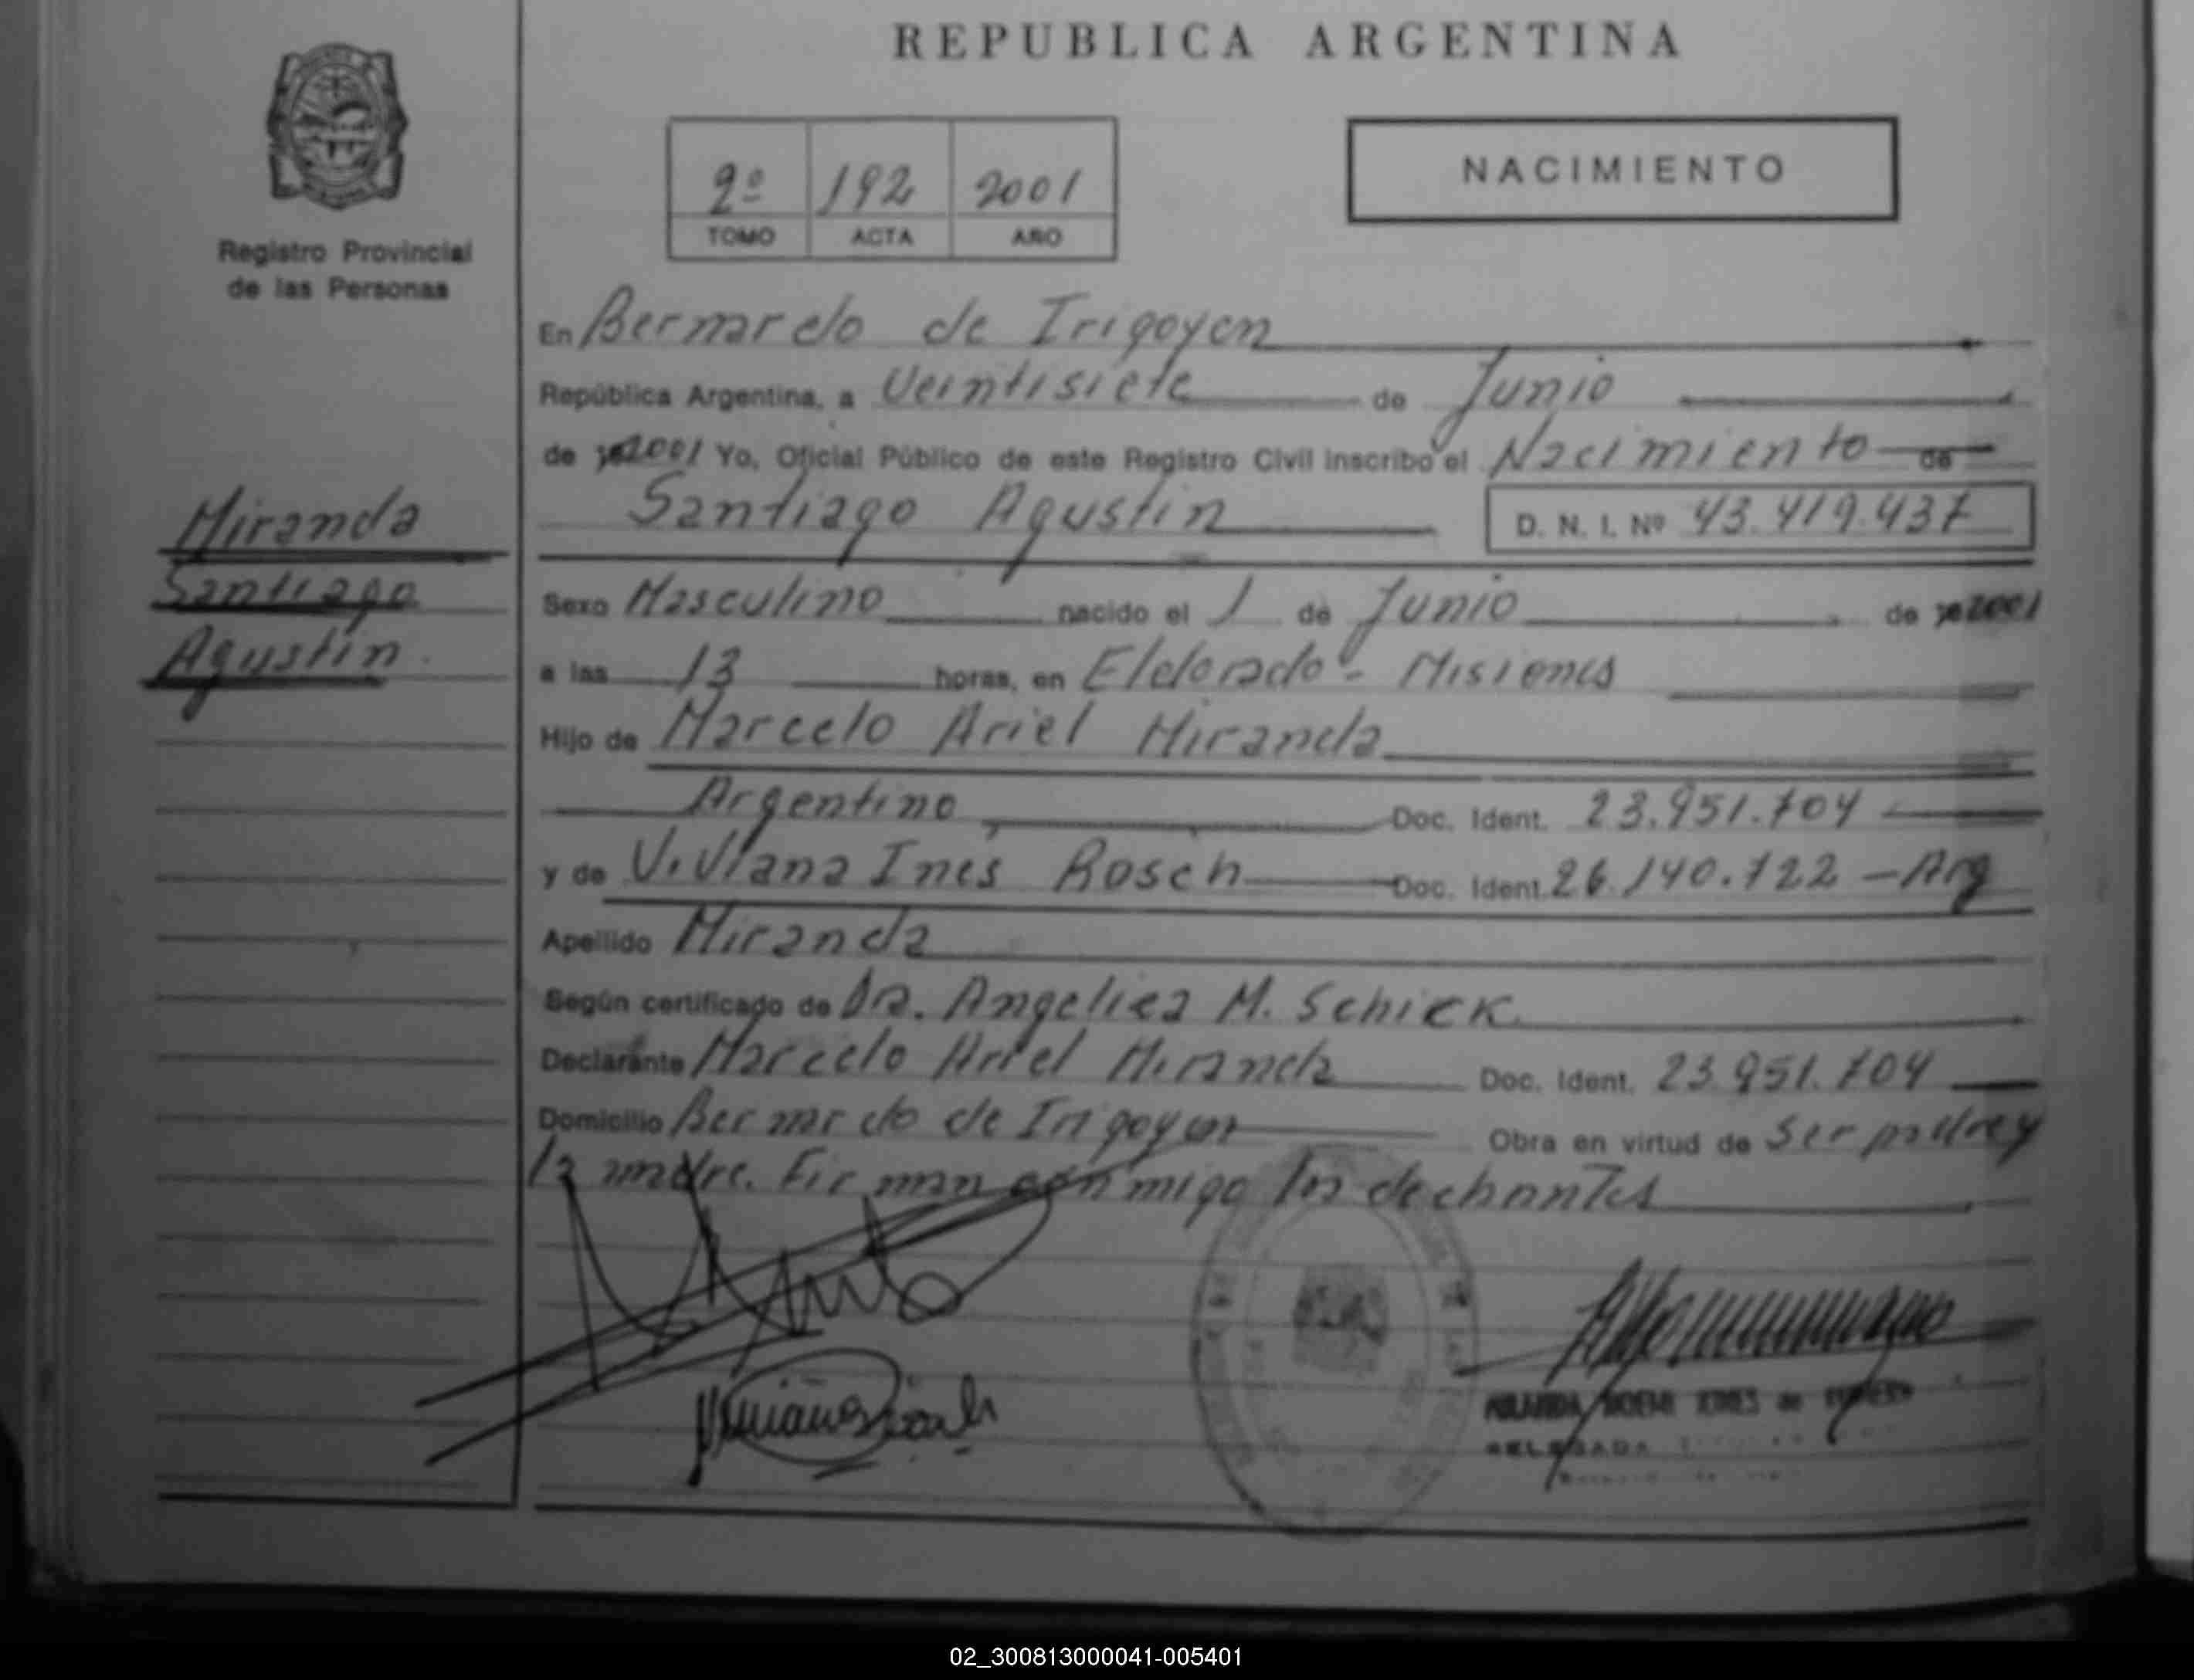 REPUBLICA ARGENTINA
Registro Provincial
de las Personas
2º 192 2001
TOMO ACTA AÑO
NACIMIENTO
En Bernardo de Irigoyen
República Argentina, a Veintisiete de Junio
de 2001 Yo, Oficial Público de este Registro Civil inscribo el Nacimiento de
Santiago Agustin D. N. I. Nº 43.419.437
Miranda
Santiago
Agustin
Sexo Masculino nacido el 1 de Junio de 2001
a las 13 horas, en Eldorado - Misiones
Hijo de Marcelo Ariel Miranda
Argentino Doc. Ident. 23.951.704
y de Viviana Ines Rosch Doc. Ident. 26.140.722 - Arg
Apellido Miranda
Según certificado de Dra. Angelica M. Schick
Declarante Marcelo Ariel Miranda Doc. Ident. 23.951.704
Domicilio Bernardo de Irigoyen Obra en virtud de Ser padre y
la madre. Firman conmigo los
de
02_300813000041-005401